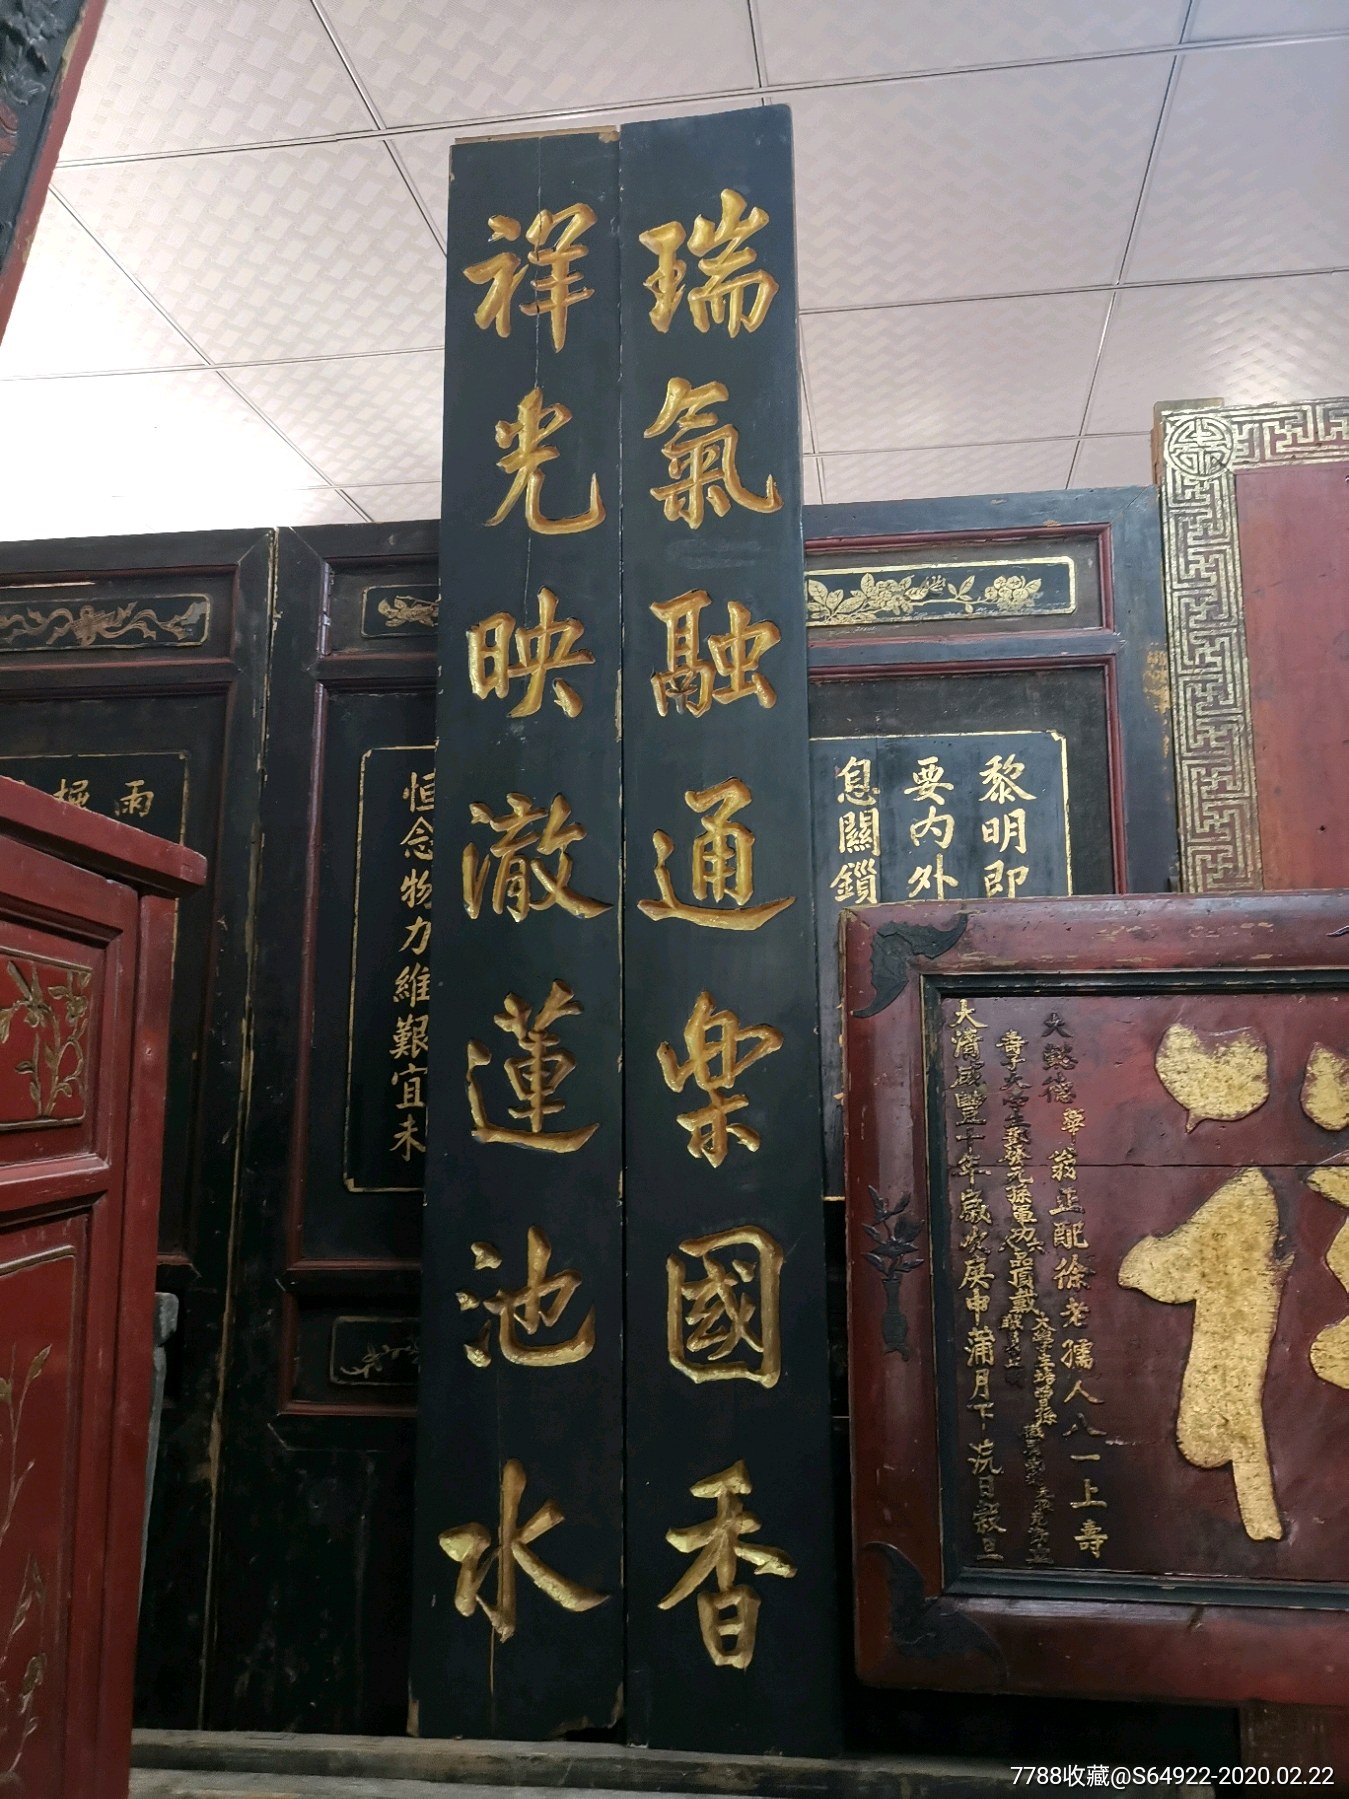 瑞氣融通樂國香
祥光映澈蓮池水
黎明即
要內外
息關鎖
恒念物力維艱宜未
雨
大懿德
翁正配徐老孺人八一上壽
大清咸豐十年歲次庚申蒲月下浣日穀旦
7788收藏@S64922-2020.02.22